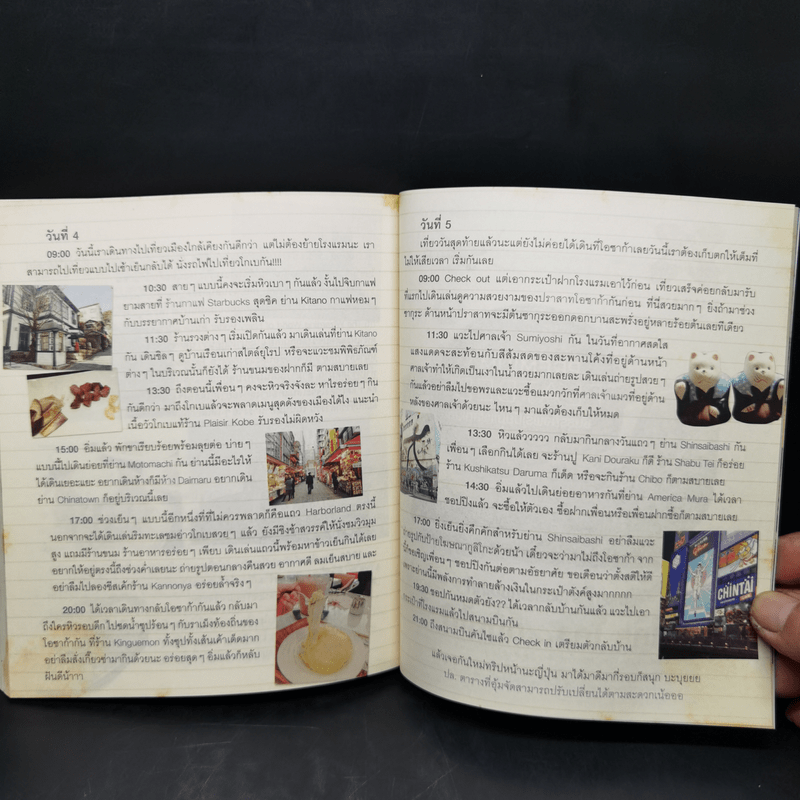 วันที่ 4
09:00 วันนี้เราเดินทางไปเที่ยวเมืองใกล้เคียงกันดีกว่า แต่ไม่ต้องย้ายโรงแรมนะ เรา
สามารถไปเที่ยวแบบไปเช้าเย็นกลับได้ นั่งรถไฟไปเที่ยวโกเบกัน!!!!
10:30 สายๆ แบบนี้คงจะเริ่มหิวเบาๆ กันแล้ว งั้นไปจิบกาแฟ
ยามสายที่ ร้านกาแฟ Starbucks สุดชิค ย่าน Kitano กาแฟหอมๆ
กับบรรยากาศบ้านเก่า รับรองเพลิน
11:30 ร้านรวงต่างๆ เริ่มเปิดกันแล้ว มาเดินเล่นที่ย่าน Kitano
กัน เดินชิลๆ ดูบ้านเรือนเก่าสไตล์ยุโรป หรือจะแวะชมพิพิธภัณฑ์
ต่างๆ ในบริเวณนั้นก็ยังได้ ร้านขนมของฝากก็มี ตามสบายเลย
13:30 ถึงตอนนี้เพื่อนๆ คงจะหิวจริงจังละ หาอะไรอร่อยๆ กิน
กันดีกว่า มาถึงโกเบแล้วจะพลาดเมนูสุดดังของเมืองได้ไง แนะนำ
เนื้อวัวโกเบแท้ร้าน Plaisir Kobe รับรองไม่ผิดหวัง
15:00 อิ่มแล้ว พักขาเรียบร้อยพร้อมลุยต่อ บ่ายๆ
แบบนี้ไปเดินย่อยที่ย่าน Motomachi กัน ย่านนี้มีอะไรให้
ได้เดินเยอะแยะ อยากเดินห้างก็มีห้าง Daimaru อยากเดิน
ย่าน Chinatown ก็อยู่บริเวณนี้เลย
17:00 ช่วงเย็นๆ แบบนี้อีกหนึ่งที่ที่ไม่ควรพลาดก็คือแถว Harborland ตรงนี้
นอกจากจะได้เดินเล่นริมทะเลชมอ่าวโกเบสวยๆ แล้ว ยังมีชิงช้าสวรรค์ให้นั่งชมวิวมุม
สูง แถมมีร้านขนม ร้านอาหารอร่อยๆ เพียบ เดินเล่นแถวนี้พร้อมหาข้าวเย็นกินได้เลย
อยากให้อยู่ตรงนี้ถึงช่วงค่ำเลยนะ ถ่ายรูปตอนกลางคืนสวย อากาศดี ลมเย็นสบาย และ
อย่าลืมไปลองชีสเค้กร้าน Kannonya อร่อยล้ำจริงๆ
20:00 ได้เวลาเดินทางกลับโอซาก้ากันแล้ว กลับมา
ถึงใครหิวรอบดึกไปซดน้ำซุปร้อนๆ กับราเม็งท้องถิ่นของ
โอซาก้ากัน ที่ร้าน Kinguemon ทั้งซุปทั้งเส้นเค้าเด็ดมาก
อย่าลืมสั่งเกี๊ยวซ่ามากินด้วยนะ อร่อยสุดๆ อิ่มแล้วก็หลับ
ฝันดีน้าาา
วันที่ 5
เที่ยววันสุดท้ายแล้วนะแต่ยังไม่ค่อยได้เดินที่โอซาก้าเลยวันนี้เราต้องเก็บตกให้เต็มที่
ไม่ให้เสียเวลา เริ่มกันเลย
09:00 Check out แต่เอากระเป๋าฝากโรงแรมเอาไว้ก่อน เที่ยวเสร็จค่อยกลับมารับ
ที่แรกไปเดินเล่นดูความสวยงามของปราสาทโอซาก้ากันก่อน ที่นี่สวยมากๆ ยิ่งถ้ามาช่วง
ซากุระ ด้านหน้าปราสาทจะมีต้นซากุระออกดอกบานสะพรั่งอยู่หลายร้อยต้นเลยทีเดียว
11:30 แวะไปศาลเจ้า Sumiyoshi กัน ในวันที่อากาศสดใส
แสงแดดจะสะท้อนกับสีส้มสดของสะพานโค้งที่อยู่ด้านหน้า
ศาลเจ้าทำให้เกิดเป็นเงาในน้ำสวยมากเลยล่ะ เดินเล่นถ่ายรูปสวยๆ
กันแล้วอย่าลืมไปขอพรและแวะซื้อแมวกวักที่ศาลเจ้าแมวที่อยู่ด้าน
หลังของศาลเจ้าด้วยนะ ไหนๆ มาแล้วต้องเก็บให้หมด
13:30 หิวแล้ววววว กลับมากินกลางวันแถวๆ ย่าน Shinsaibashi กัน
เพื่อนๆ เลือกกินได้เลย จะร้านปู Kani Douraku ก็ดี ร้าน Shabu Tei ก็อร่อย
ร้าน Kushikatsu Daruma ก็เด็ด หรือจะกินร้าน Chibo ก็ตามสบายเลย
14:30 อิ่มแล้วไปเดินย่อยอาหารกันที่ย่าน America Mura ได้เวลา
ชอปปิงแล้ว จะซื้อให้ตัวเอง ซื้อฝากเพื่อนหรือเพื่อนฝากซื้อก็ตามสบายเลย
17:00 ยิ่งเย็นยิ่งคึกคักสำหรับย่าน Shinsaibashi อย่าลืมแวะ
ถ่ายรูปกับป้ายโฆษณากูลิโกะด้วยน้า เดี๋ยวจะว่ามาไม่ถึงโอซาก้า จาก
นี้ก็เชิญเพื่อนๆ ชอปปิงกันต่อตามอัธยาศัย ขอเตือนว่าตั้งสติให้ดี
เพราะย่านนี้มีพลังการทำลายล้างเงินในกระเป๋าตังค์สูงมากกกกก
19:30 ชอปกันหมดตัวยัง?? ได้เวลากลับบ้านกันแล้ว แวะไปเอา
กระเป๋าที่โรงแรมแล้วไปสนามบินกัน
21:00 ถึงสนามบินคันไซแล้ว Check in เตรียมตัวกลับบ้าน
แล้วเจอกันใหม่ทริปหน้านะญี่ปุ่น มาได้มาดีมากี่รอบก็สนุก บะบุยยย
ปล. ตารางที่อุ้มจัดสามารถปรับเปลี่ยนได้ตามสะดวกเน้อออ
CHINTAI